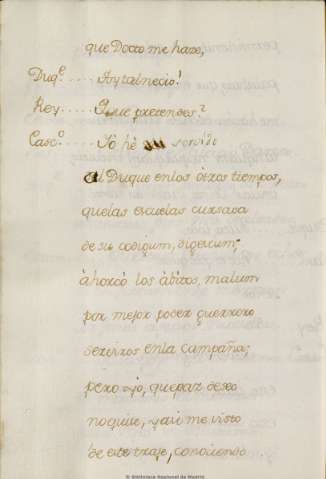 que Docto me haze,
Duq.e .... Ay tal necio!
Rey .... Que pretendes?
Casc.o .... Yo hè servido
al Duque en los otros tiempos,
que las escuelas cursava
de su codigum, digestum
ahorcó los abitos, malum
por mejor poder guerrero
serviros en la campaña;
pero yo, que paz deseo
no quise, y asi me visto
de este traje, conociendo
© Biblioteca Nacional de Madrid